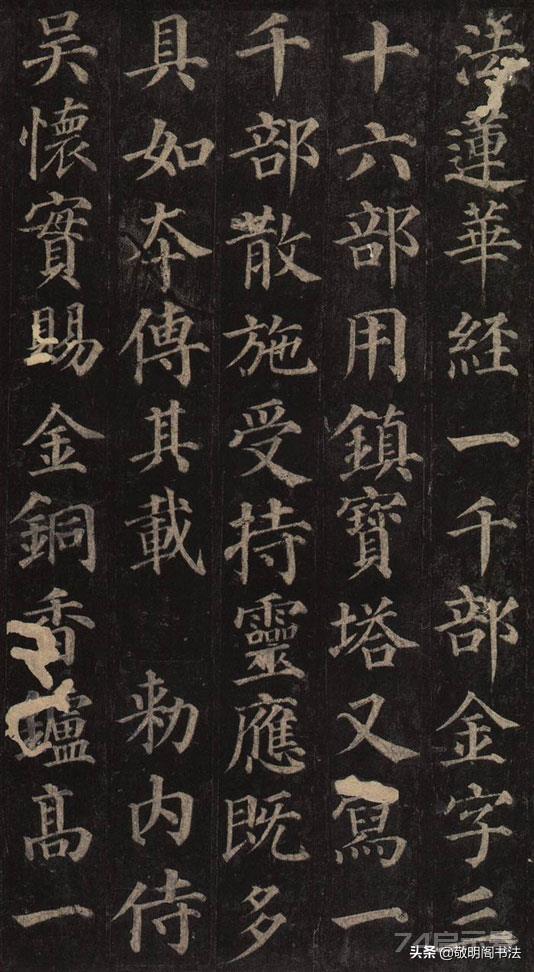 法蓮華經一千部金字三
十六部用鎮寶塔又寫一
千部散施受持靈應既多
具如夲傳其載 勅内侍
吴懷實賜金銅香鑪髙一
头条 @敬明阁书法